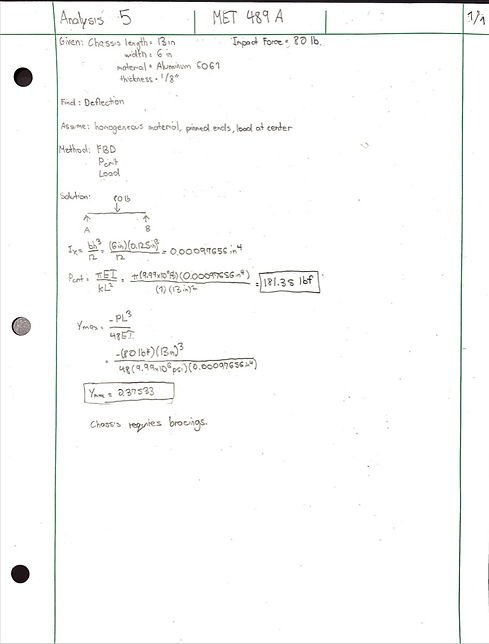 Analysis 5 MET 489 A 1/1
Given: Chassis length = 13 in Impact Force = 80 lb.
width = 6 in
material = Aluminum 6061
thickness = 1/8"
Find: Deflection
Assume: homogeneous material, pinned ends, load at center
Method: FBD
Pcrit
Load
Solution: 80 lb
A B
Ix = bh³/12 = (6in)(0.125in)³/12 = 0.00097656 in⁴
Pcrit = πEI/KL² = π(9.99x10⁶)(0.00097656in⁴)/(1)(13in)² = 181.35 lbf
Ymax = -PL³/48EI
= -(80 lbf)(13in)³/48(9.99x10⁶psi)(0.00097656in⁴)
Ymax = 0.37533
Chassis requires bracings.